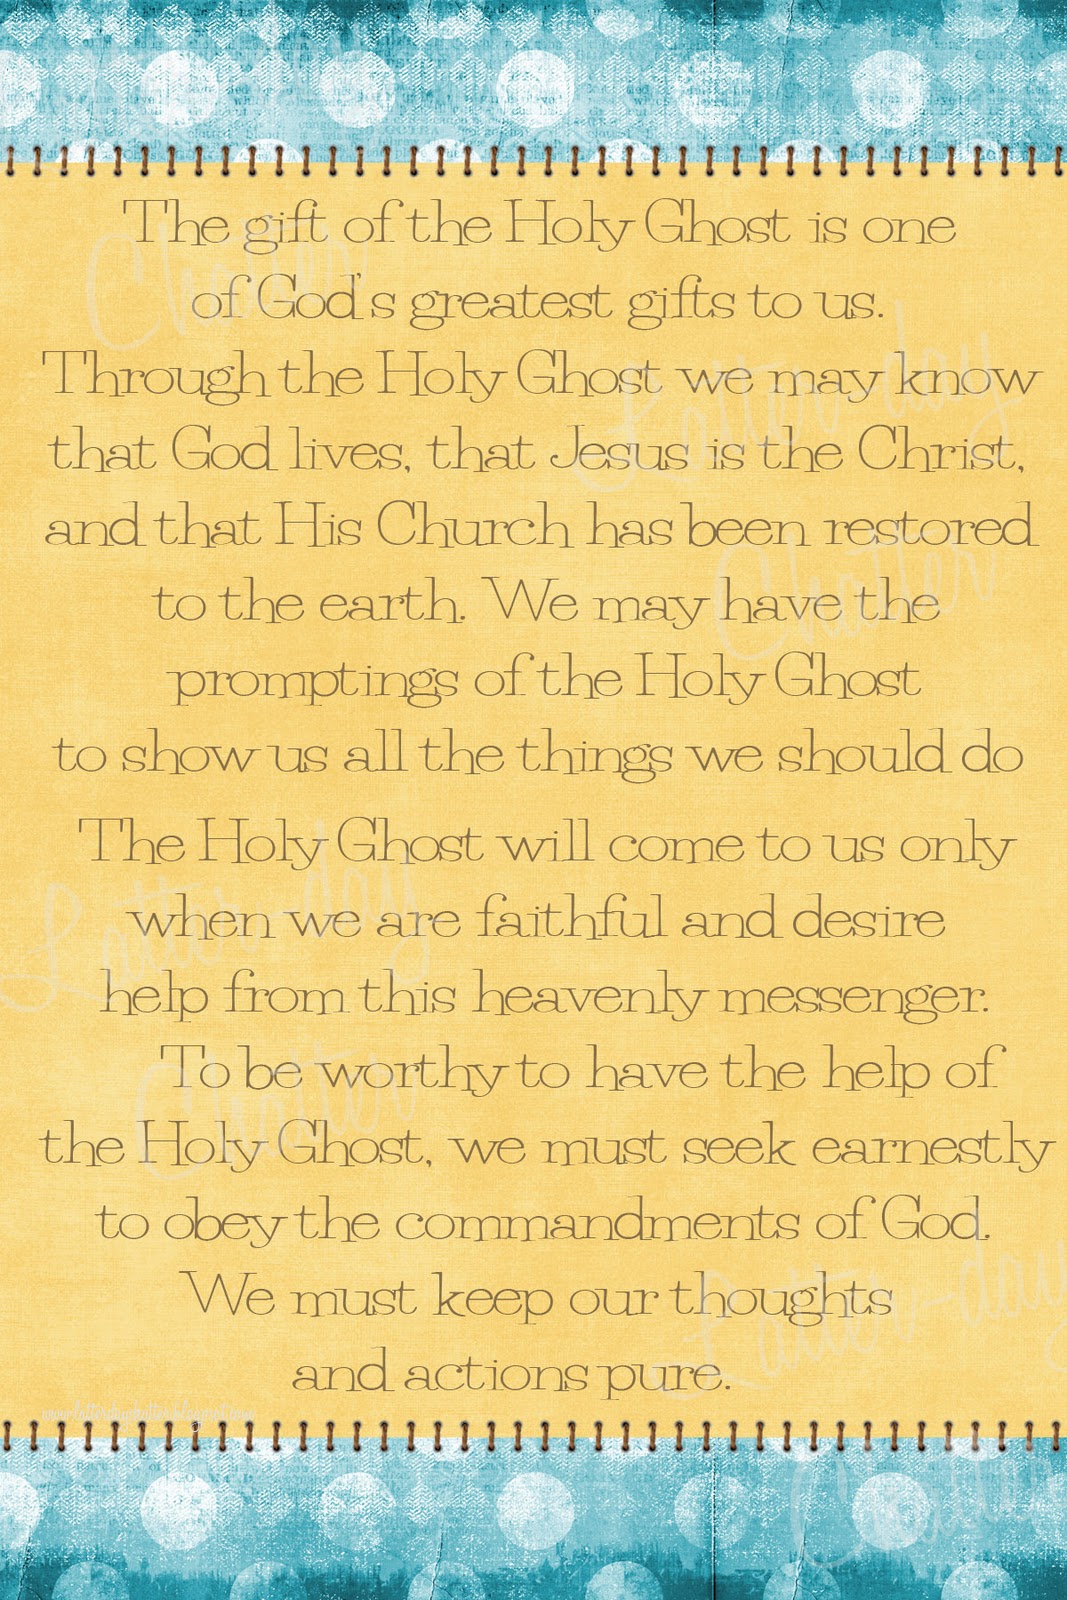 The gift of the Holy Ghost is one
of God's greatest gifts to us.
Through the Holy Ghost we may know
that God lives, that Jesus is the Christ,
and that His Church has been restored
to the earth. We may have the
promptings of the Holy Ghost
to show us all the things we should do
The Holy Ghost will come to us only
when we are faithful and desire
help from this heavenly messenger.
To be worthy to have the help of
the Holy Ghost, we must seek earnestly
to obey the commandments of God.
We must keep our thoughts
and actions pure.
www.latterdaychatter.blogspot.com
Chatter
Latter-day
Chatter
Latter-day
Chatter
Latter-day
Chatter